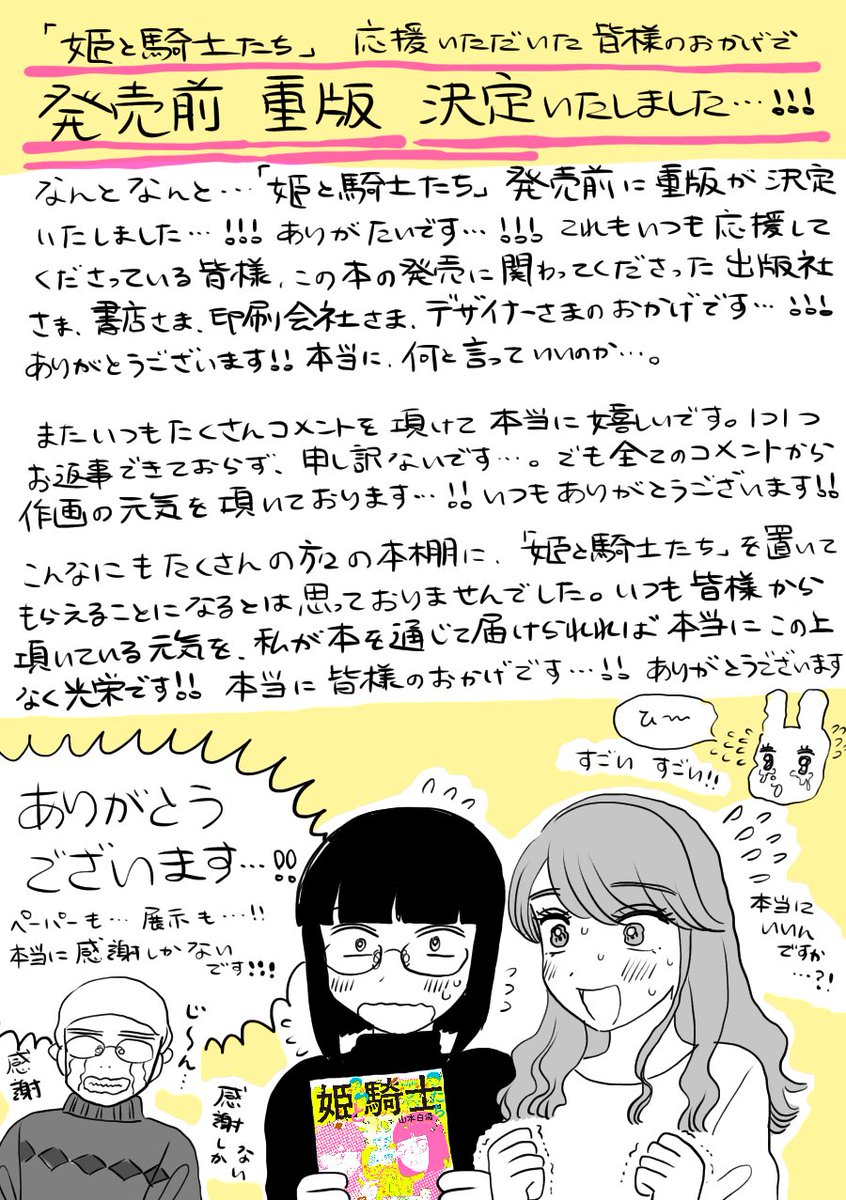 「姫と騎士たち」 応援いただいた皆様のおかげで
発売前 重版 決定いたしました…!!!
なんとなんと…「姫と騎士たち」発売前に重版が決定
いたしました…!!! ありがたいです…!!! これもいつも応援して
くださっている皆様、この本の発売に関わってくださった出版社
さま、書店さま、印刷会社さま、デザイナーさまのおかげです…!!!
ありがとうございます!! 本当に、何と言っていいのか…。
またいつもたくさんコメントを頂けて本当に嬉しいです。1つ1つ
お返事できておらず、申し訳ないです…。でも全てのコメントから
作画の元気を頂いております…!! いつもありがとうございます!!
こんなにもたくさんの方々の本棚に、「姫と騎士たち」を置いて
もらえることになるとは思っておりませんでした。いつも皆様から
頂いている元気を、私が本を通じて届けられれば本当にこの上
なく光栄です!! 本当に皆様のおかげです…!! ありがとうございます
ひ〜
すごい すごい!!
ありがとう
ございます…!!
ペーパーも… 展示も…!!
本当に感謝しかない
です!!!
本当に
いいん
ですか
…?!
じ〜ん…
感謝
感謝しか
ない
姫と騎士たち